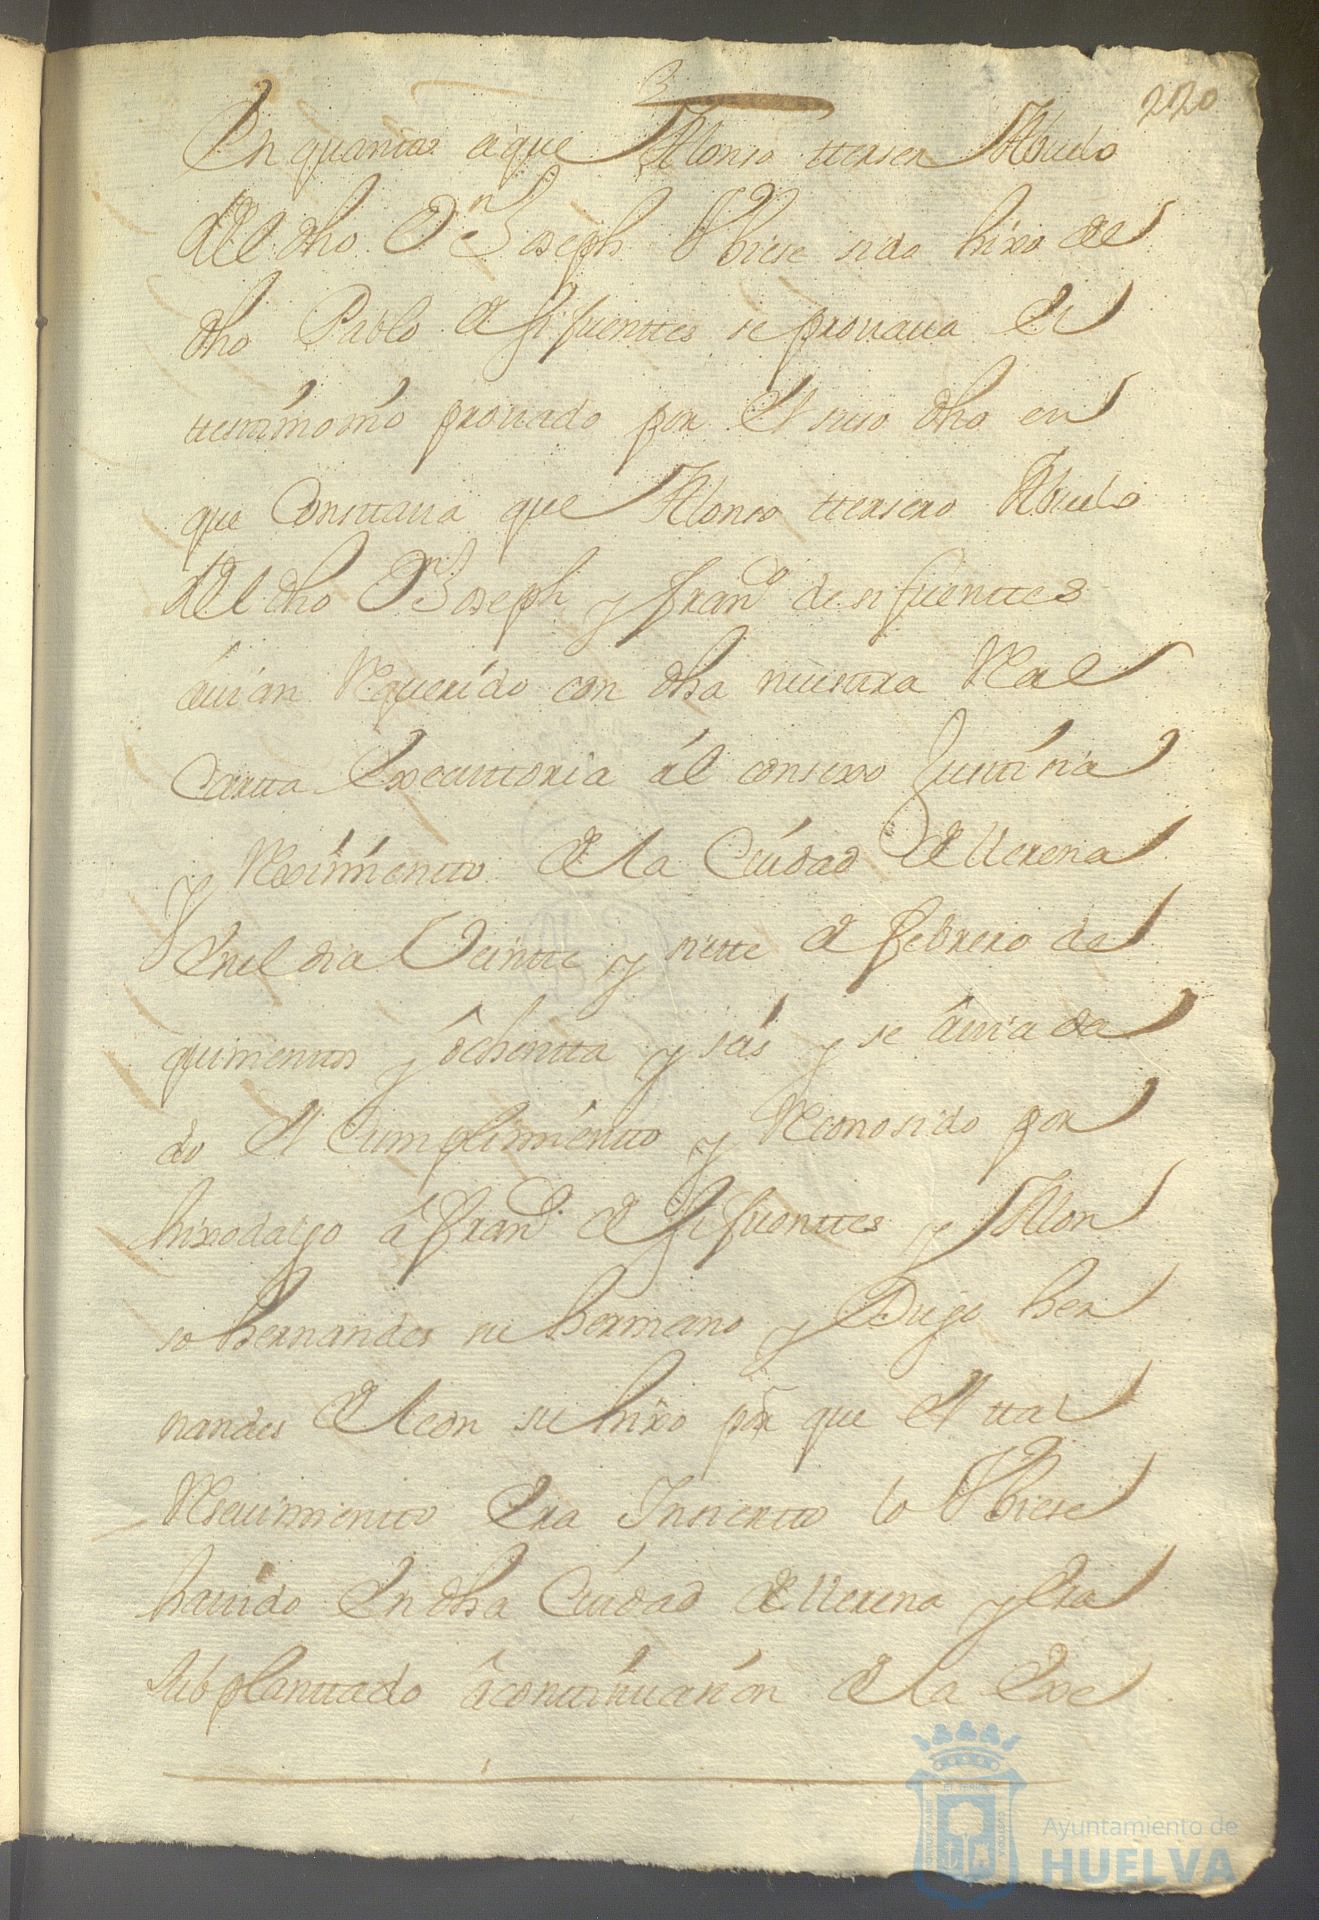 220
En quanto a que Alonso tterser Abuelo
del dho Dn Joseph Vbiese sido hixo de
dho Pablo de sifuenttes se prouaua el
ttestimonio prouado por el suso dho en
que Consttaua que Alonso ttersero Abuelo
del dho Dn Joseph y frando de sifuenttes
auian Requerido con dha nuestra Real
Cartta Executtoria al consexo Justtisia
y Reximientto de la Ciudad de llerena
en el dia Veintte y siette de febrero de
quinientos y ochentta y seis y se auia da
do el Cumplimientto y Reconosido por
hixodalgo a frando de sifuenttes y Alon
so hernandes su hermano y Diego her
nandes de leon su hixo por que el ttal
Reseuimientto era Insiertto lo Vbiese
hauido en dha Ciudad de llerena y era
subplanttado a conttinuasion de la Exe
Ayuntamiento de
HUELVA